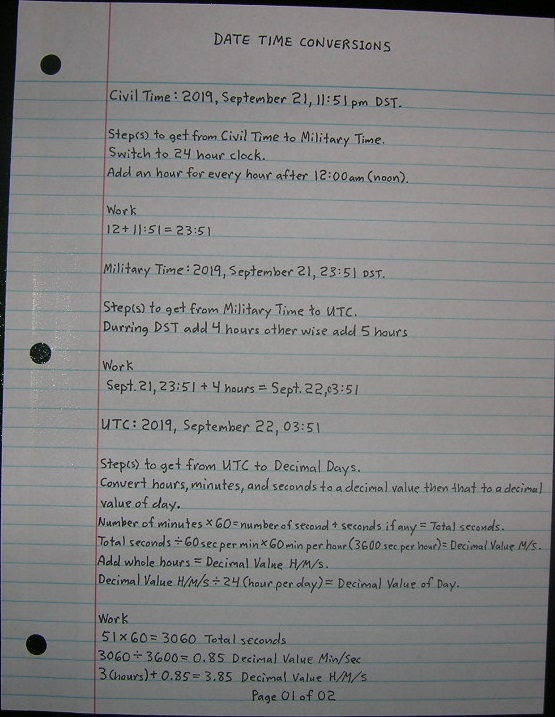 DATE TIME CONVERSIONS
Civil Time: 2019, September 21, 11:51 pm DST.
Step(s) to get from Civil Time to Military Time.
Switch to 24 hour clock.
Add an hour for every hour after 12:00am (noon).
Work
12 + 11:51 = 23:51
Military Time: 2019, September 21, 23:51 DST.
Step(s) to get from Military Time to UTC.
Durring DST add 4 hours other wise add 5 hours
Work
Sept. 21, 23:51 + 4 hours = Sept. 22, 03:51
UTC: 2019, September 22, 03:51
Step(s) to get from UTC to Decimal Days.
Convert hours, minutes, and seconds to a decimal value then that to a decimal
value of day.
Number of minutes × 60 = number of second + seconds if any = Total seconds.
Total seconds ÷ 60 sec per min × 60 min per hour (3600 sec per hour) = Decimal Value M/S.
Add whole hours = Decimal Value H/M/S.
Decimal Value H/M/S ÷ 24 (hour per day) = Decimal Value of Day.
Work
51 × 60 = 3060 Total seconds
3060 ÷ 3600 = 0.85 Decimal Value Min/Sec
3 (hours) + 0.85 = 3.85 Decimal Value H/M/S
Page 01 of 02